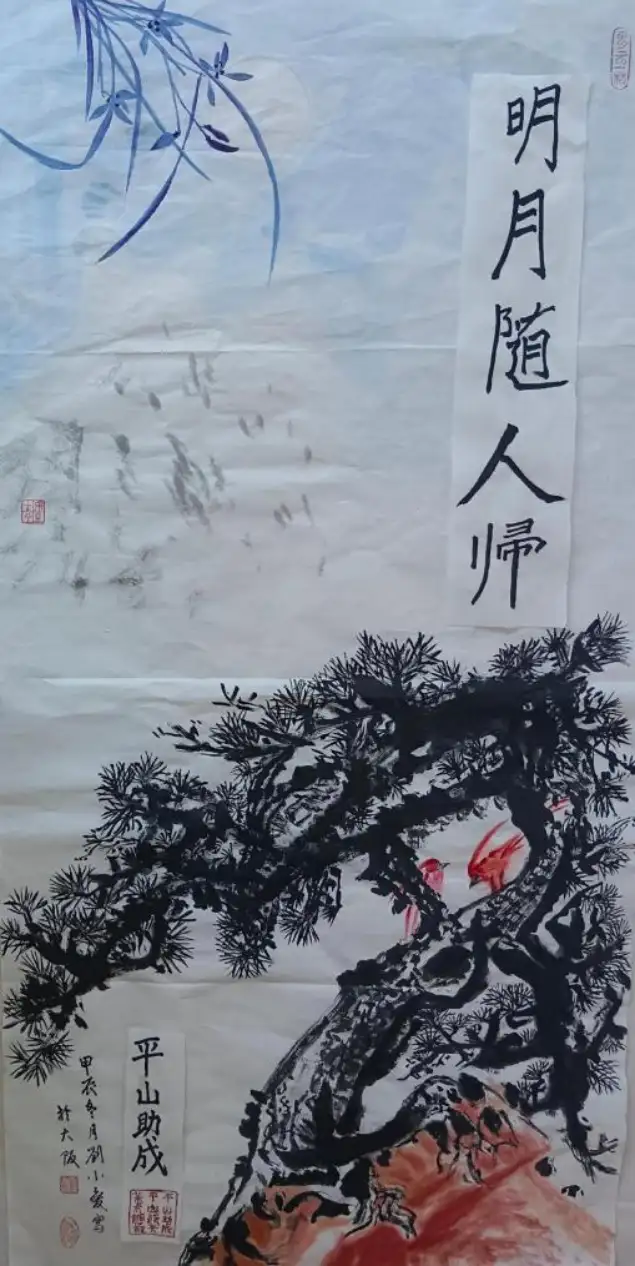 明月随人帰
平山助成
甲辰冬月刘小爱写
於大阪